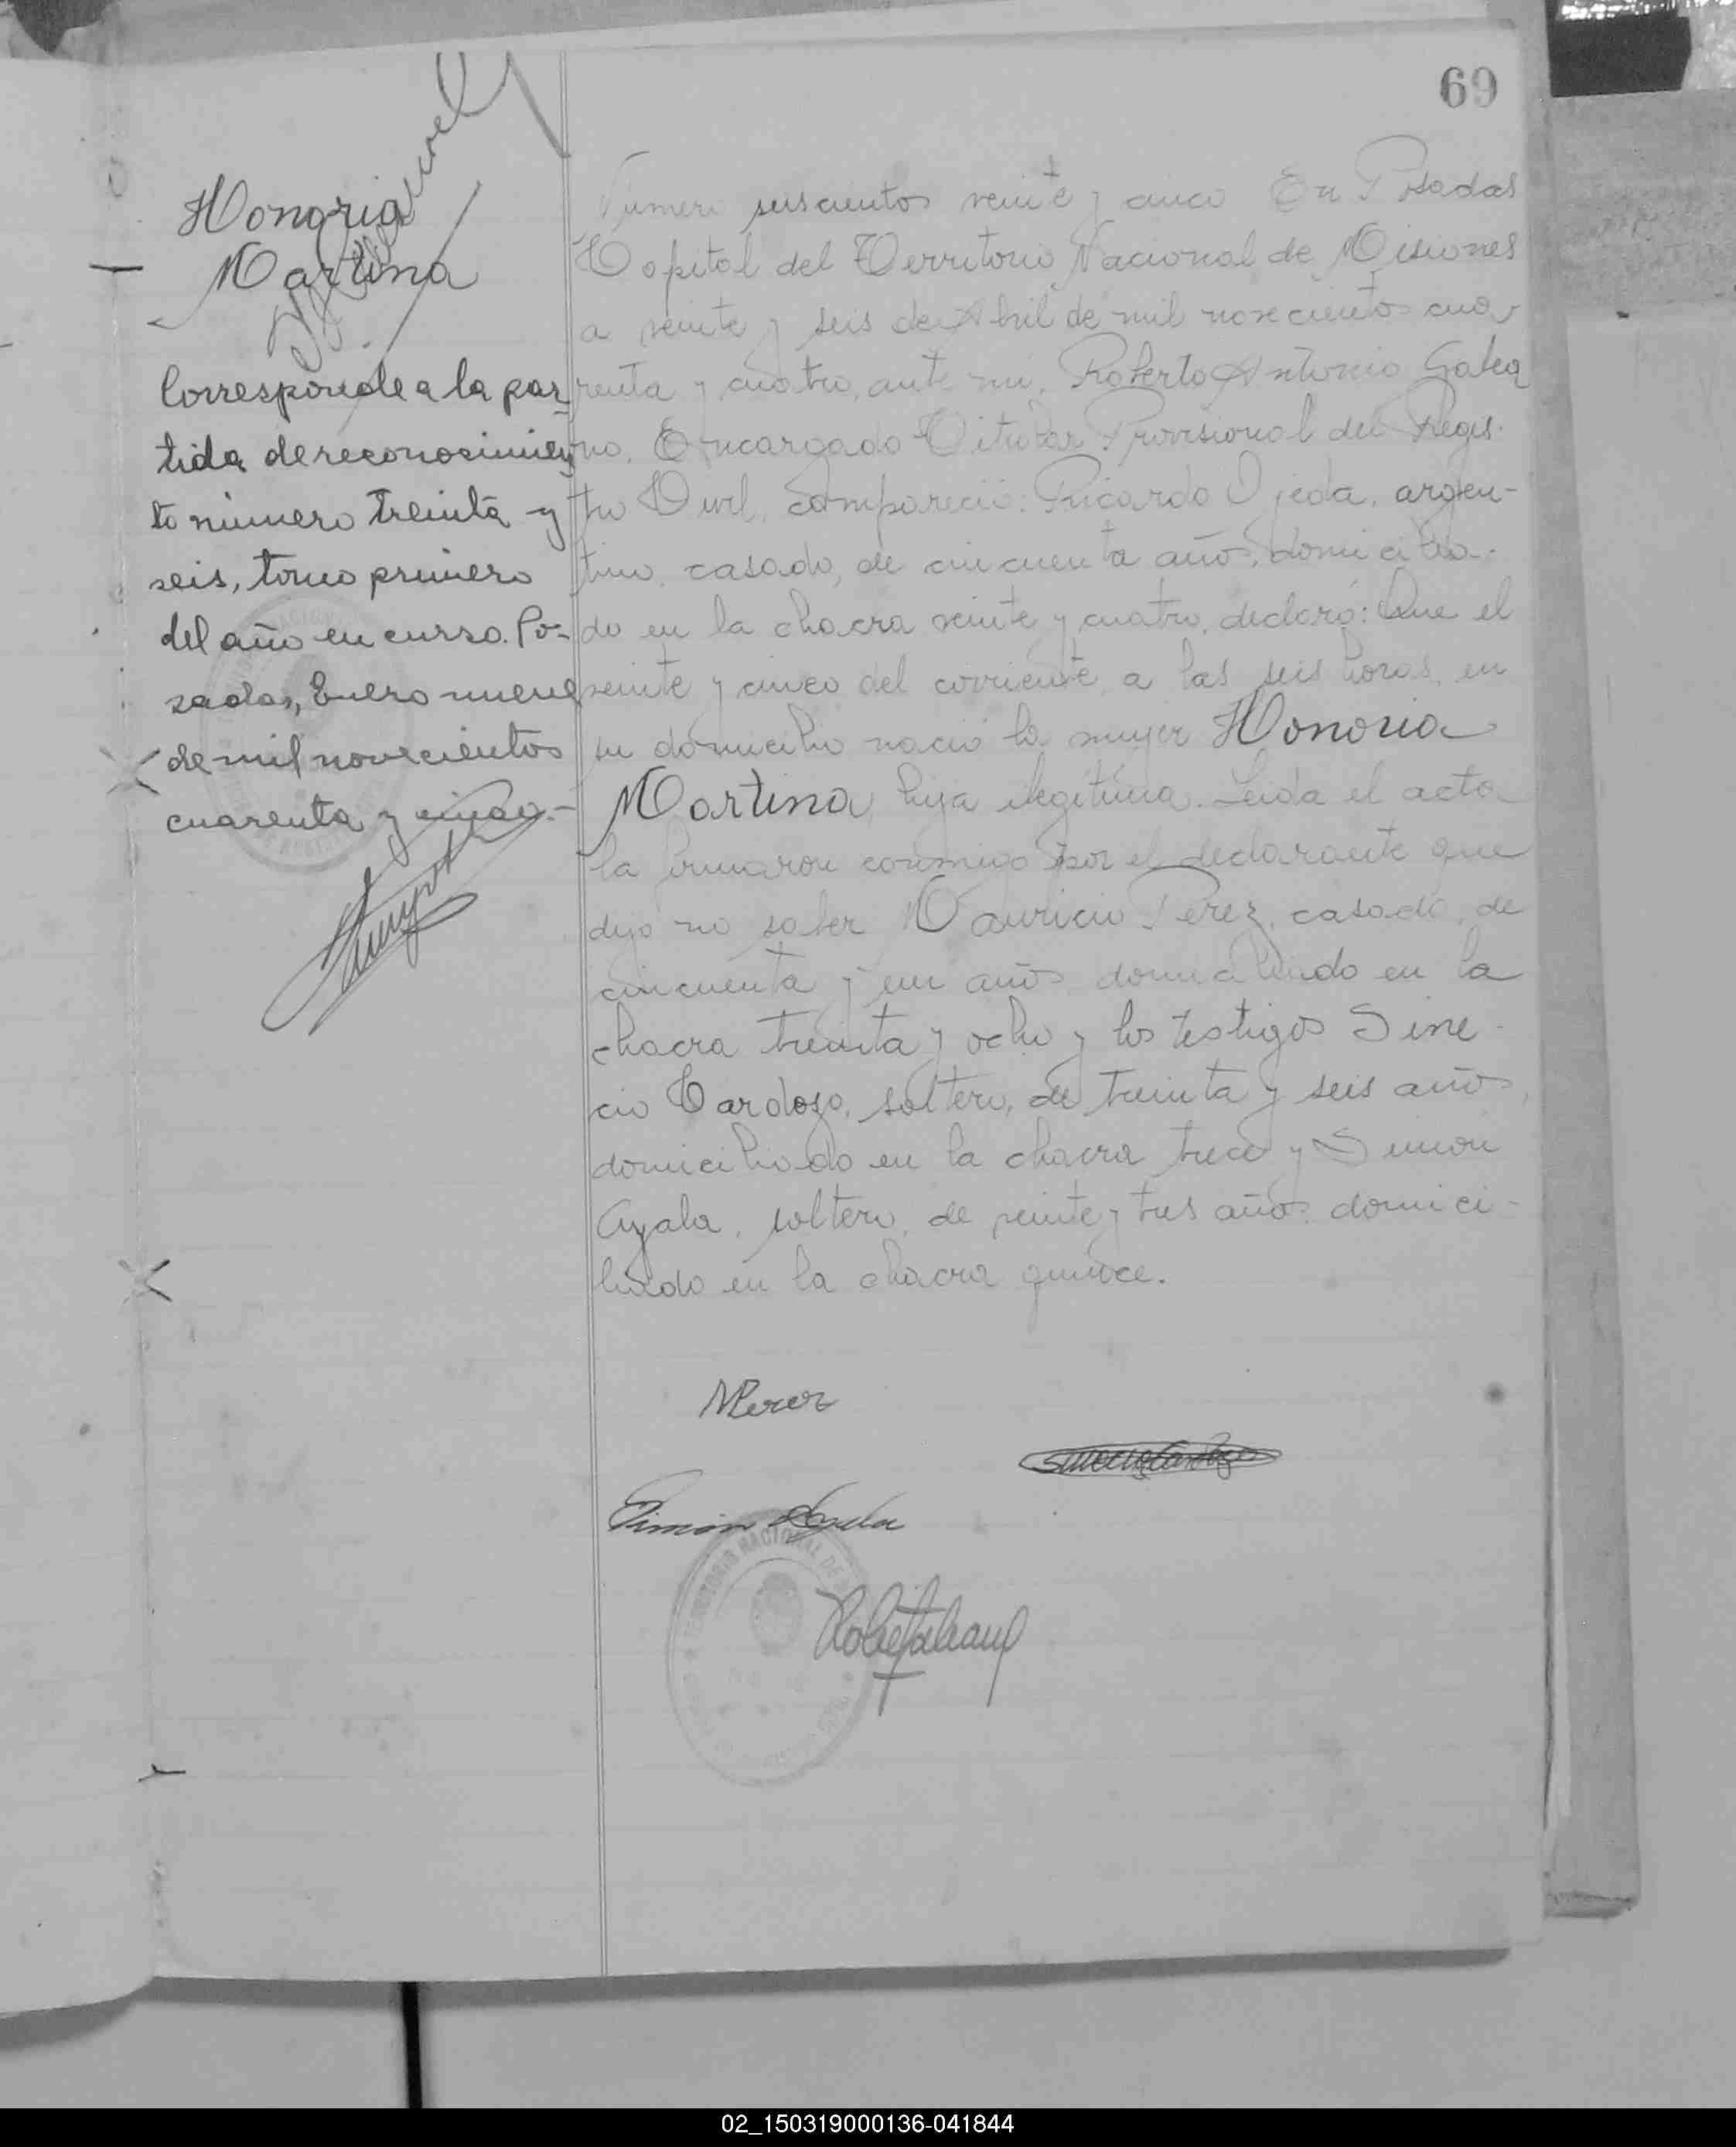 69
Honoria
Martina
Corresponde a la par-
tida de reconosimien
to número treinta y
seis, tomo primero
del año en curso. Po-
sadas, Enero nueve
de mil novecientos
cuarenta y cinco.-
Número seiscientos veinte y cinco En Posadas
Capital del Territorio Nacional de Misiones
a veinte y seis de Abril de mil novecientos cua-
renta y cuatro, ante mi, Roberto Antonio Galea
no, Encargado Titular Provisional del Regis-
tro Civil, compareció: Ricardo Ojeda, argen-
tino, casado, de cincuenta años, domicilia-
do en la chacra veinte y cuatro, declaró: Que el
veinte y cinco del corriente, a las seis horas, en
su domicilio nació la mujer Honoria
Martina, hija ilegítima. Leida el acta
la firmaron conmigo por el declarante que
dijo no saber Mauricio Perez, casado, de
cincuenta y un años domiciliado en la
chacra treinta y ocho y los testigos Sine-
cio Cardozo, soltero, de treinta y seis años,
domiciliado en la chacra trece y Simon
Ayala, soltero, de veinte y tres años domici-
liado en la chacra quince.
MPerez
Sinecio Cardozo
Simón Ayala
TERRITORIO NACIONAL DE
02_150319000136-041844